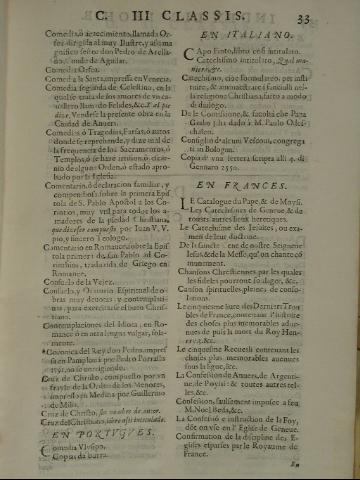 C. III CLASSIS. 33
Comedia, ò acetecimiento, llamada Or-
fea: dirigida al muy Illustre, y assi ma-
gnifico señor don Pedro de Arella-
no, Conde de Aguilar.
Comedia Orfea.
Comedia la Sanra, impressa en Venecia.
Comedia segunda de Celestina, en la
qual se trata de los amores de vn ca-
uallero llamado Felides, &c. Y al pie
dize, Vendese la presente obra en la
Ciudad de Anuers.
Comedias ò Tragedias, Farsas, ò autos
donde se reprehende, y dize mal de
la frequencia de los Sacramentos, ò
Templos, ò se haze irrision, ò
de ningun Orden, ò estado apro-
bado por la Iglesia.
Comentario, ò declaracion familiar, y
compendiosa sobre la primera Epis
tola de S. Pablo Apostol a los Co-
rintios, muy vtil para todos los a-
madores de la piedad Christiana,
compuesto por Iuan V. V.
pio, y sincero Teologo.
Comentario en Romance sobre la Epis
tola primera de san Pablo ad Co-
rinthios, traduzida de Griego en
Romance.
Consuelo de la Vejez.
Consuelo, y Oratorio Espiritual de o-
bras muy deuotas, y contemplati-
uas, para exercitarse el buen Chris-
tiano.
Contemplaciones del Idiota, en Ro-
mance ò en otra lengua vulgar, sola-
mente.
Coronica del Rey don Pedro, impres-
sa en Pamplona por Pedro Porralis
1591. no se corrigiendo.
Cruz de Christo, compuesto por vn
frayle de la Orden de los Menores,
impresso en Medina por Guillermo
de Millis.
Cruz de Christo, sin nombre de autor.
Cruz del Christiano,
EN PORTVGVES.
Comedia Vlysipo.
Copias da burra.
EN ITALIANO.
Capo Finto, libro assi intitulado.
Catechismo intitolato,
Catechismo, cioe formolario, per ins-
truire, & ammaestrare i fanciulli nel-
la religione Christiana, fatto a modo
di dialogo.
De la Comissione, & facoltà che Papa
Giulio ha dado à M. Paulo Odes-
chalco.
Consiglio d'alcuni Vescoui, congrega
ti in Bologna.
Copia d'vna lettera scripta alli 4. di
Gennaro 1550.
EN FRANCES.
Le Catalogue du Pape, & de Moysi.
Les Catechismes de Geneue, & de
toutes autres heretiques.
Le Catechisme des Iesuites, ou exa-
mens de leur doctrine.
De la saincte Cene de nostre Seigneur
Iesus, & de la Messe, qu'on chante cō
munement.
Chansons Chrestiennes, par les quales
les fideles pourront soulager, &c.
Canson spirituelles, pleines de conso-
lations.
Le cinquiesme liure des Derniers Trou
bles de France, contenant l'histoire
des choses plus memorables adue-
nues depuis la mort du Roy Hen-
ry 2. &c.
Le cinquiesme Recueil contenant les
choses plus memorables auenues
sous la ligue, &c.
La Confession de Anuers, de Argenti-
ne, de Poyssi: & toutes autres tel-
les, &c.
Confession, faulsement imposee a feu
M. Noel Beda, &c.
La Confessiō e instruction de la Foy,
dōt on vse en l'Eglise de Geneue.
Confirmation de la discipline des E-
glises esparses par le Royaume de
France.